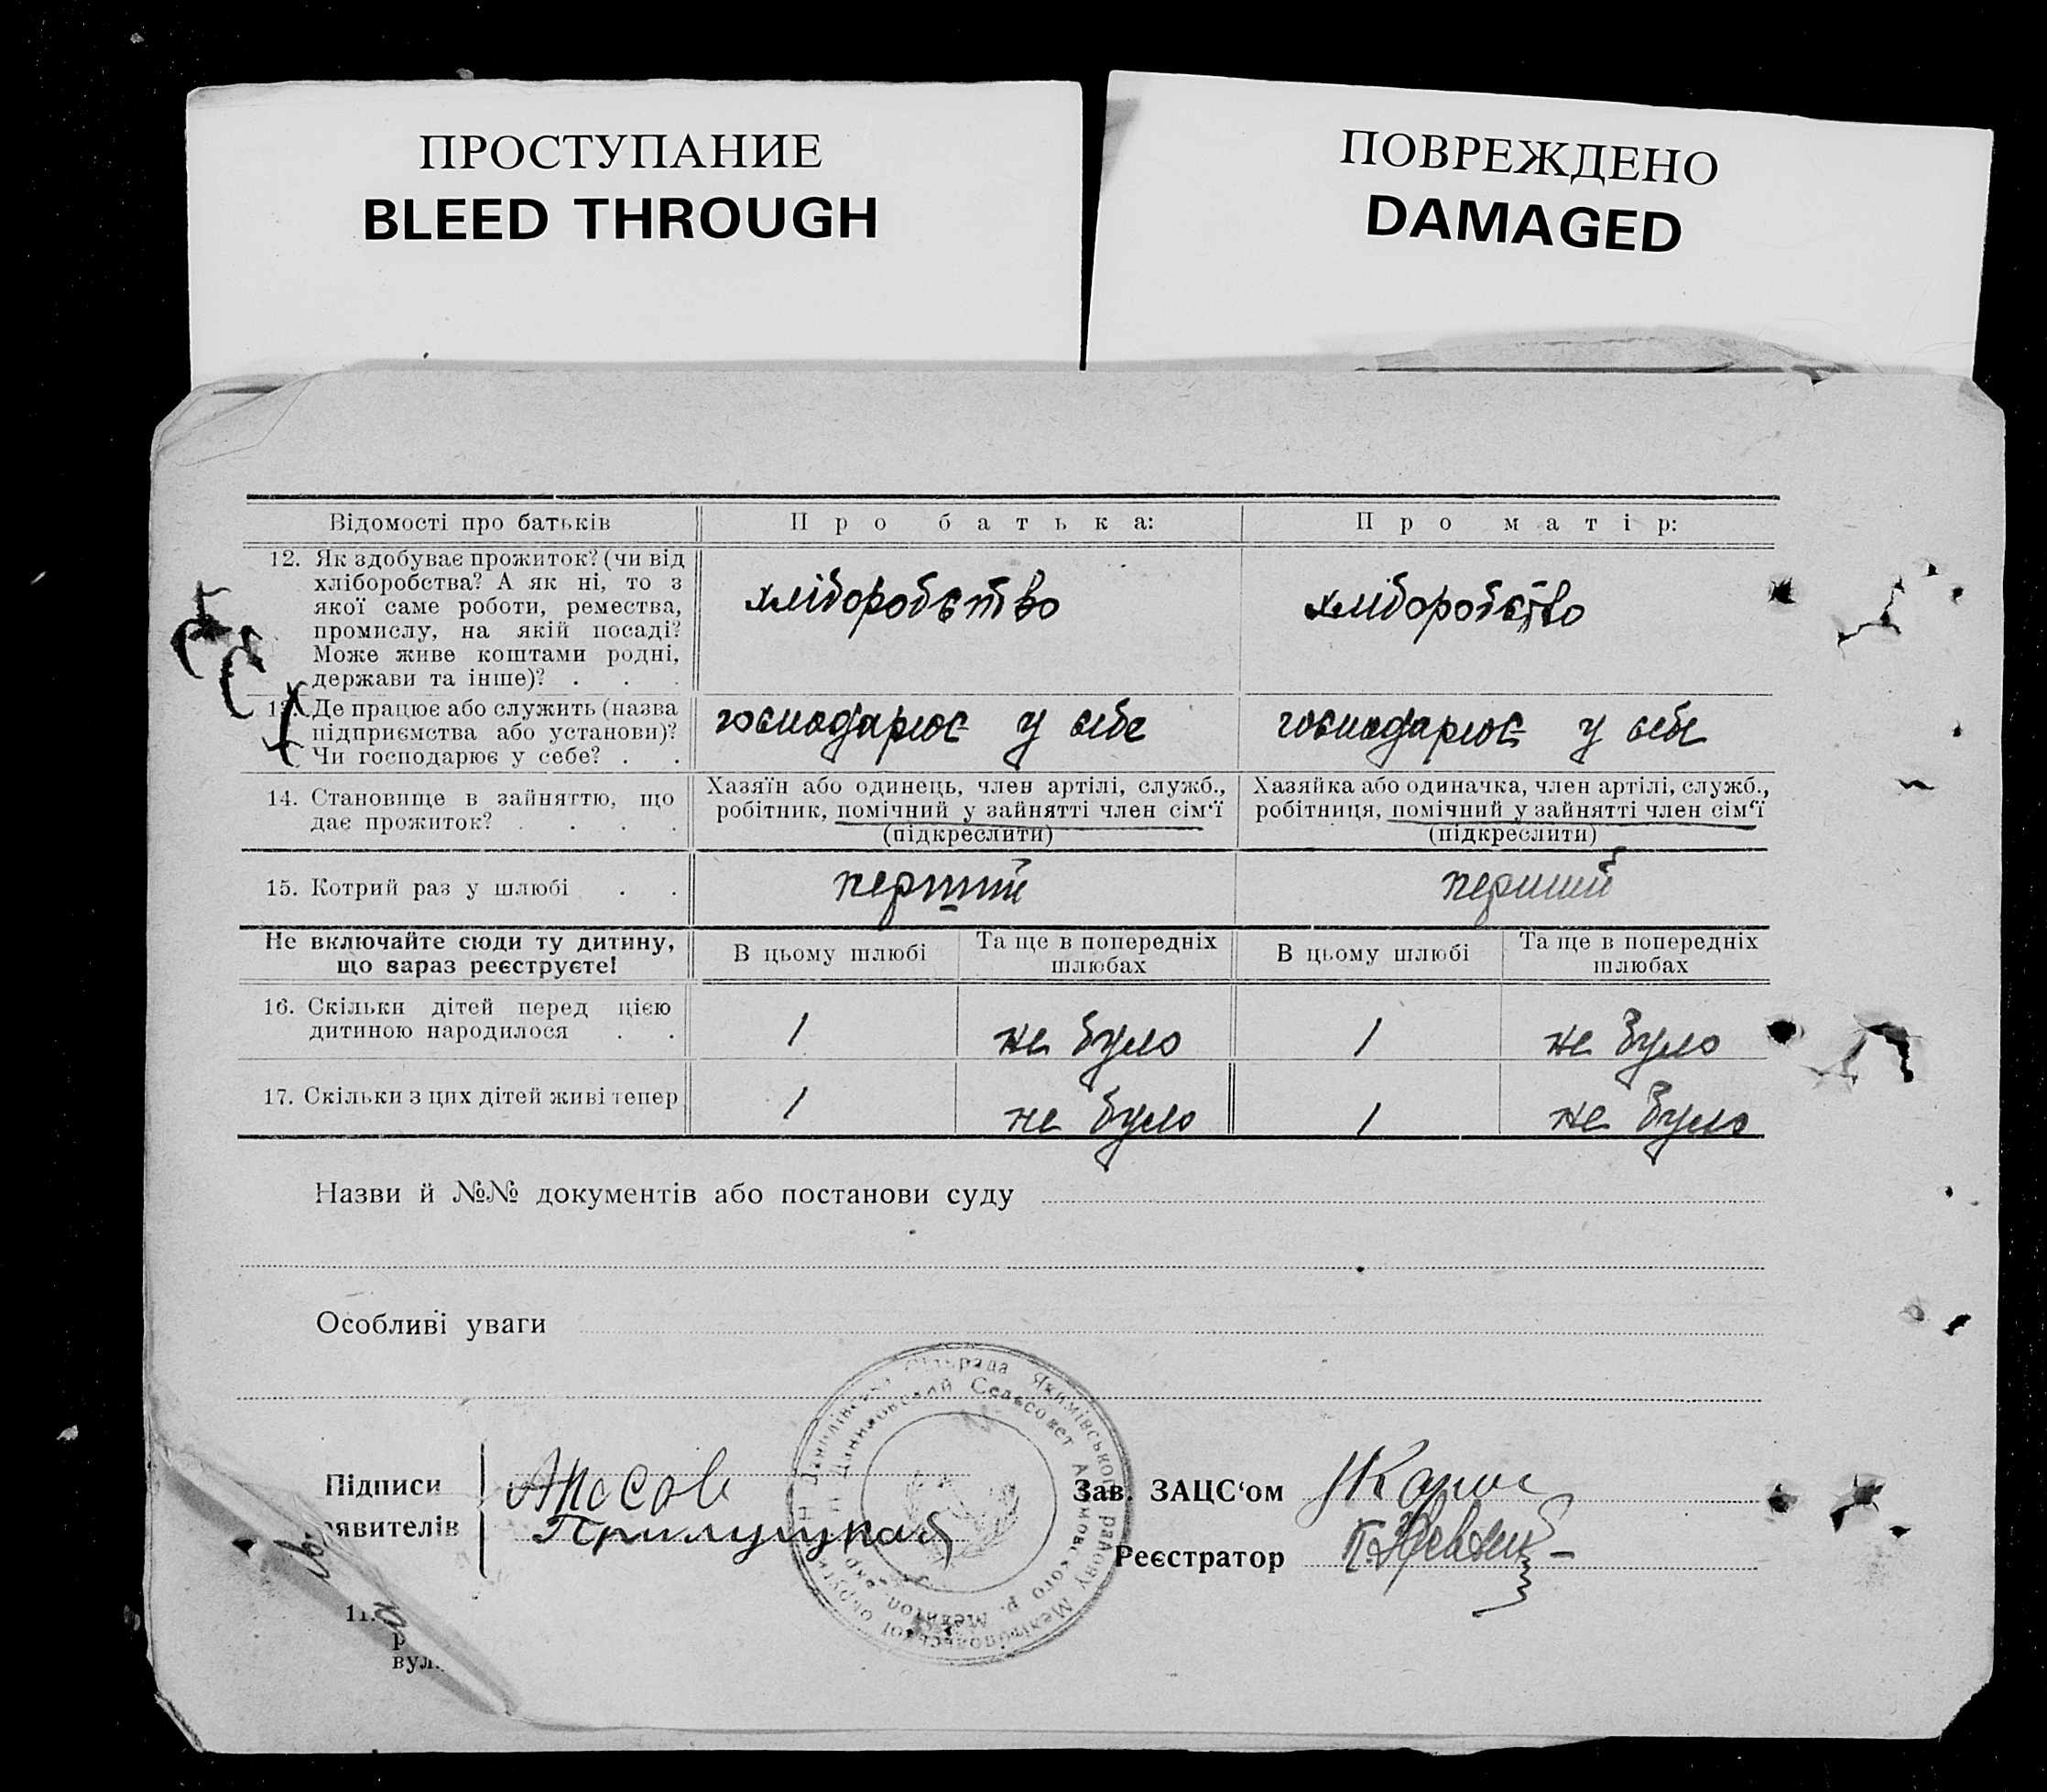 ПРОСТУПАНИЕ
BLEED THROUGH
ПОВРЕЖДЕНО
DAMAGED
Відомості про батьків
Про батька:
Про матір:
12. Як здобуває прожиток? (чи від
хліборобства? А як ні, то з
якої саме роботи, ремества,
промислу, на якій посаді?
Може живе коштами родні,
держави та інше)? . . .
хліборобство
хліборобство
13. Де працює або служить (назва
підприємства або установи)?
Чи господарює у себе? . .
господарює у себе
господарює у себе
14. Становище в зайняттю, що
дає прожиток? . . . .
Хазяїн або одинець, член артілі, служб.,
робітник, помічний у зайнятті член сім‘ї
(підкреслити)
Хазяйка або одиначка, член артілі, служб.,
робітниця, помічний у зайнятті член сім‘ї
(підкреслити)
15. Котрий раз у шлюбі . .
перший
перший
Не включайте сюди ту дитину,
що зараз реєструєте!
В цьому шлюбі
Та ще в попередніх
шлюбах
В цьому шлюбі
Та ще в попередніх
шлюбах
16. Скільки дітей перед цією
дитиною народилося . .
1
не було
1
не було
17. Скільки з цих дітей живі тепер
1
не було
1
не було
Назви й №№ документів або постанови суду
Особливі уваги
Сільрада Якимівського району Мелітопольської округи
Сельсовет
Підписи
явителів
Прилуцкая
Зав. ЗАЦС‘ом
Реєстратор
11.
р
вул.